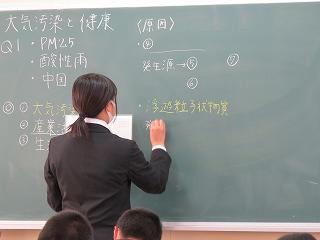 大気汚染と健康
Q1 ・PM2.5
・酸性雨
・中国
◎ ① 大気汚
② 産業
③ 生
〈原因〉
・④
発生源→⑤ ⑦
⑥
・浮遊粒子状物質
発